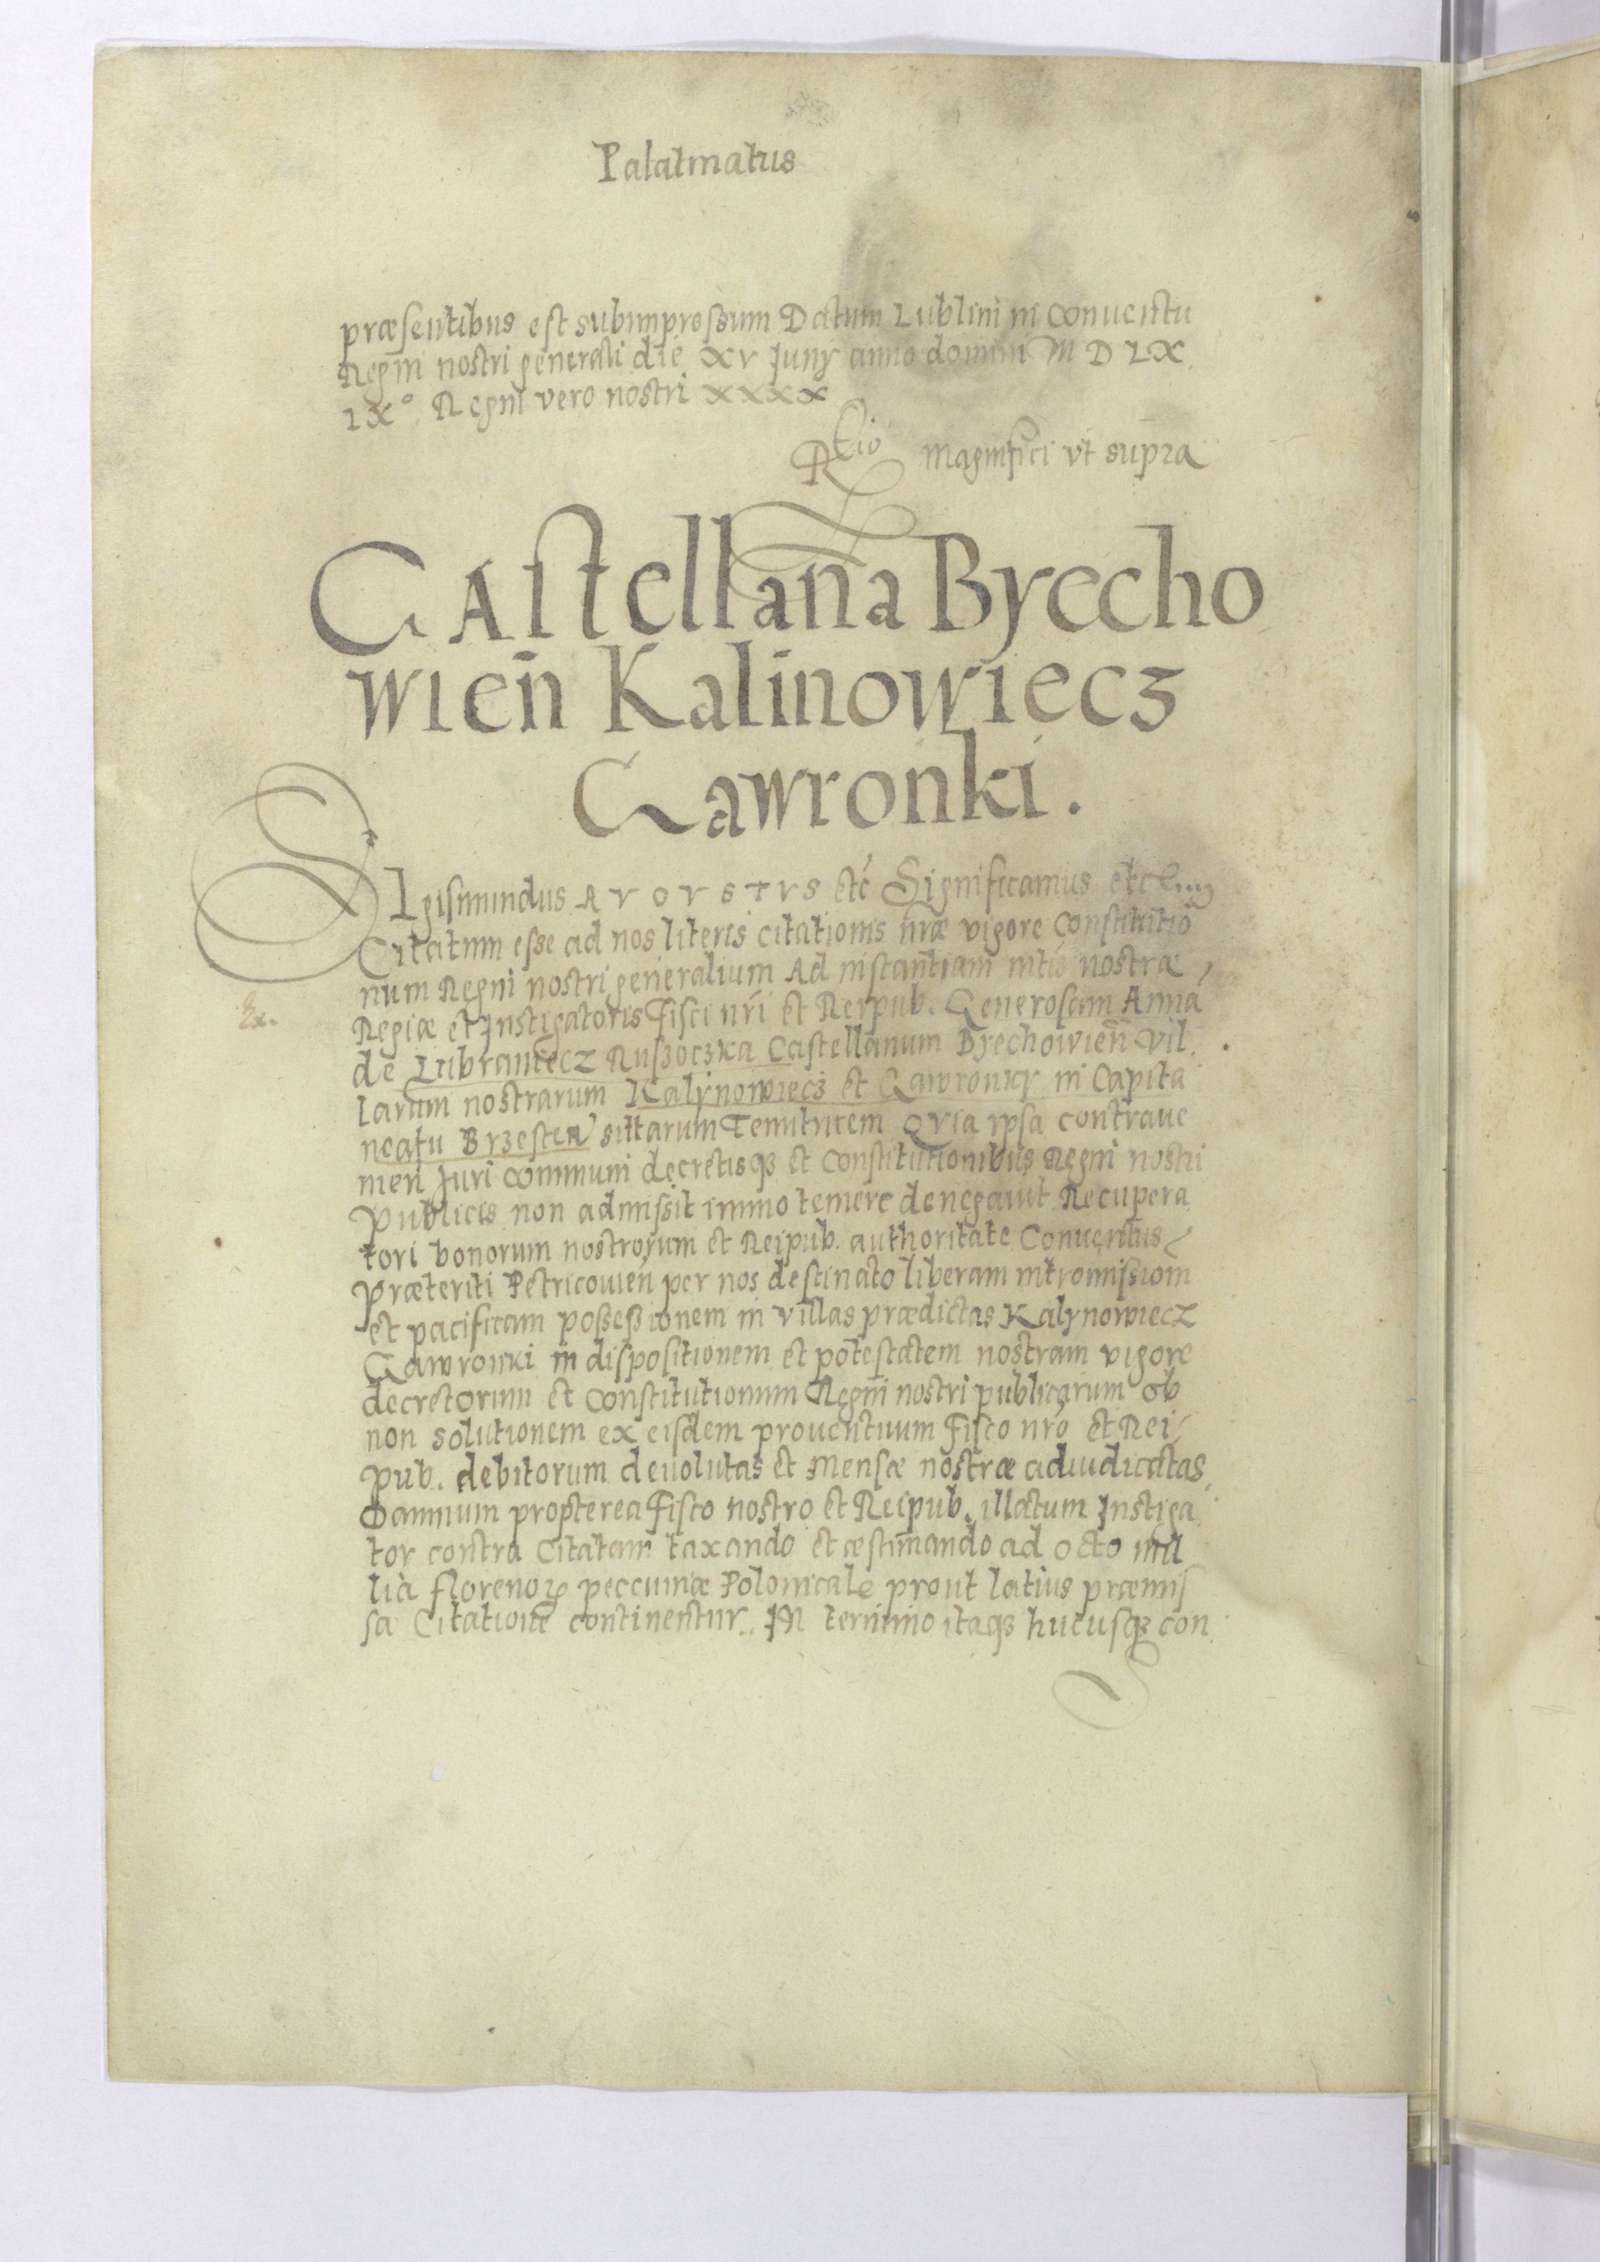 Palatinatus
præsentibus est subimpressum Datum Lublini in Conuentu
Regni nostri generali die XV Junÿ anno domini M D LX
IX° Regni vero nostri XXXX
Rtio Magnifici vt supra
CAstellana Byecho
wień Kalinowiecz
Gawronki.
SIgismundus AVGVSTVS etć Significamus etc
Citatam esse ad nos literis citationis nr̃æ vigore Constitutio
num Regni nostri generalium Ad instantiam nostræ
Regiæ et Instigatoris Fisci nr̃i et Reipub. Generosam Anna
Ex.
de Lubraniecz Ruszoczka Castellanum Byechowień Vil
larum nostrarum Kalynowiecz et Gawronky in Capita
neatu Brzesteń sittarum Tenutricem Qvia ipsa contraue
nien Juri communi decretisq3 et Constitutionibus Regni nostri
Publicis non admissit immo temere denegauit Recupera
tori bonorum nostrorum et Reipub. authoritate Conuentus
Præteriti Petricouień per nos destinato liberam intromissiom
et pacificam possessionem in villas prædictas Kalynowiecz
Gawronki in dispositionem et potestatem nostram vigore
decretorum et Constitutionum Regni nostri publicarum ob
non solutionem ex eisdem prouentuum Fisco nr̃o et Rei
pub. debitorum deuolutas et Mensæ nostræ adiudicatas
Damnum propterea Fisco nostro et Reipub. illatum Instiga
tor contra Citatam taxando et æstimando ad octo mil
lia florenoꝝ peccuniæ Polonicale prout latius præmis
sa Citatione continentur. In termino itaq3 hucusq3 con